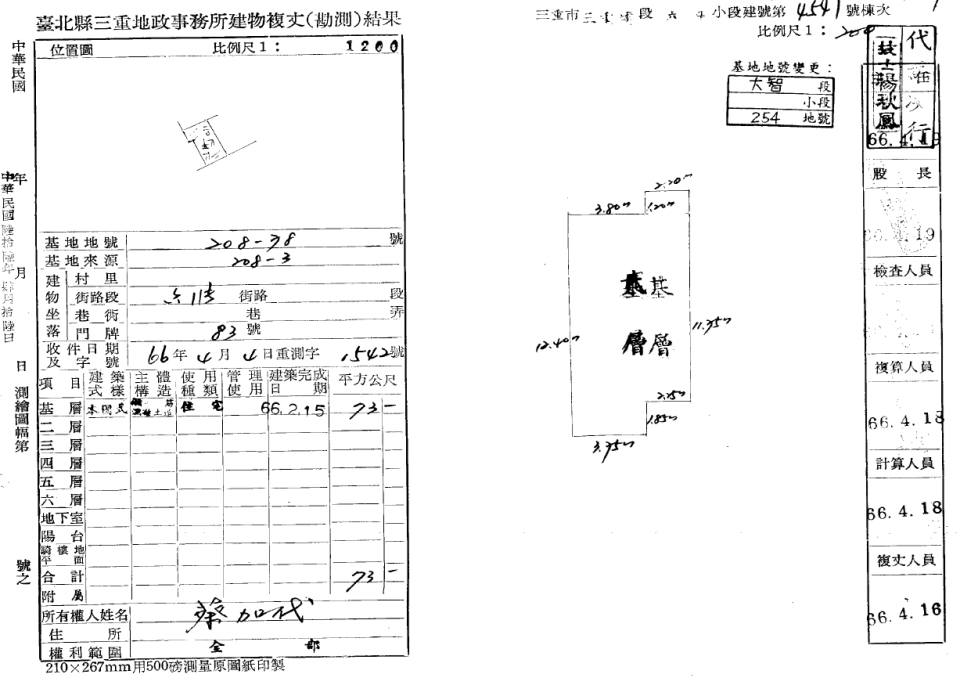 臺北縣三重地政事務所建物複丈(勘測)結果
中華民國 年 月 日 測繪圖幅第 號之
中華民國陸拾陸年肆月拾陸日
位置圖 比例尺1:1200
基地地號 208-38 號
基地來源 208-3
建物坐落
村里
街路段 街路 段
巷衖 巷 弄
門牌 83號
收件日期及字號 66年4月4日重測字1542號
項目 建築式樣 主體構造 使用種類 管理使用 建築完成日期 平方公尺
基層 本國式 住宅 66.2.15 73-
二層
三層
四層
五層
六層
地下室
陽台
騎樓地平面
合計 73-
附屬
所有權人姓名 蔡加代
住所
權利範圍 全部
210×267mm用500磅測量原圖紙印製
三重市 段 小段建號第4541號棟次1
比例尺1:200
基地地號變更:
大智 段
小段
254 地號
2.20m
3.80m
1.20m
基 基
層 層
12.40m
11.35m
2.25m
1.85m
3.75m
代
行
技士楊秋鳳
66.4.19
股長
66.4.19
檢查人員
複算人員
66.4.18
計算人員
66.4.18
複丈人員
66.4.16